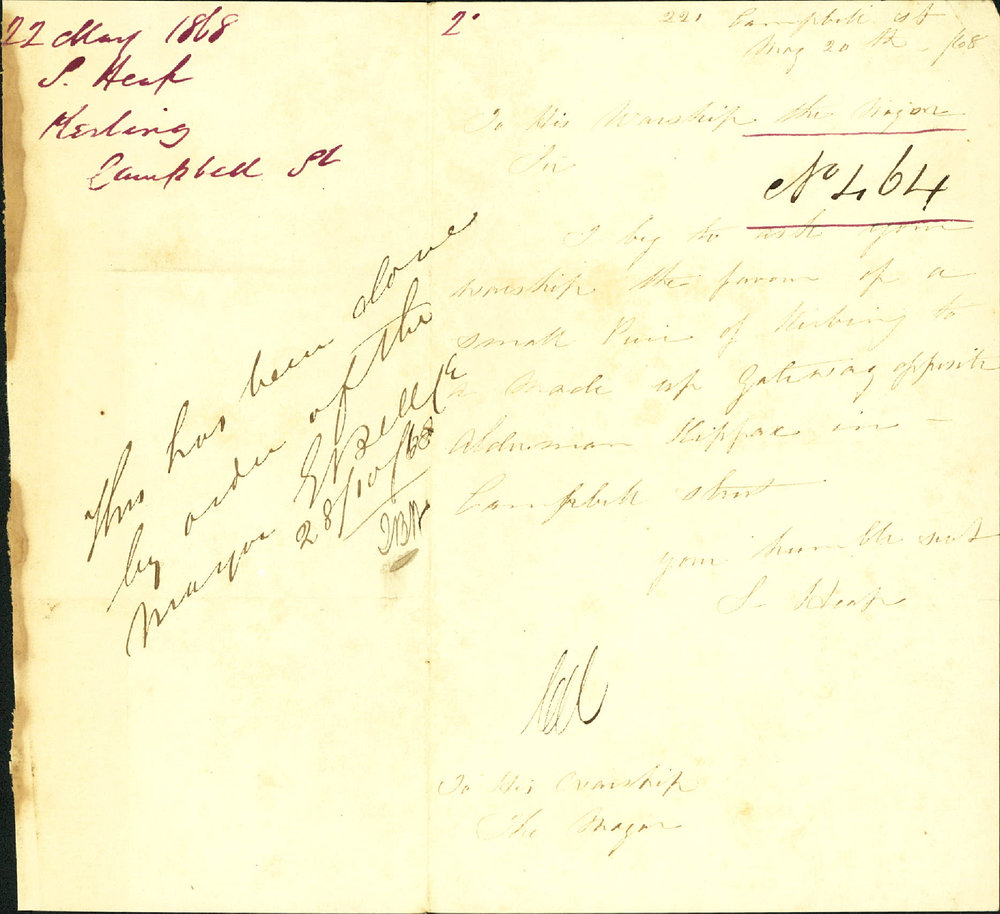 22 May 1868
S. Heap
Kerbing
Campbell St
This has been done
by order of the
Mayor E Bell CE
28/10/68
2.
221 Campbell st
May 20th /68
To His Warship the Mayor
Sir
No 464
I beg to ask your
warship the favour of a
small Pice of Kirbing to
a Made up Gateway opposite
Alderman Kippax in -
Campbell street
your humble svt
S Heap
To His Warship
The Mayor